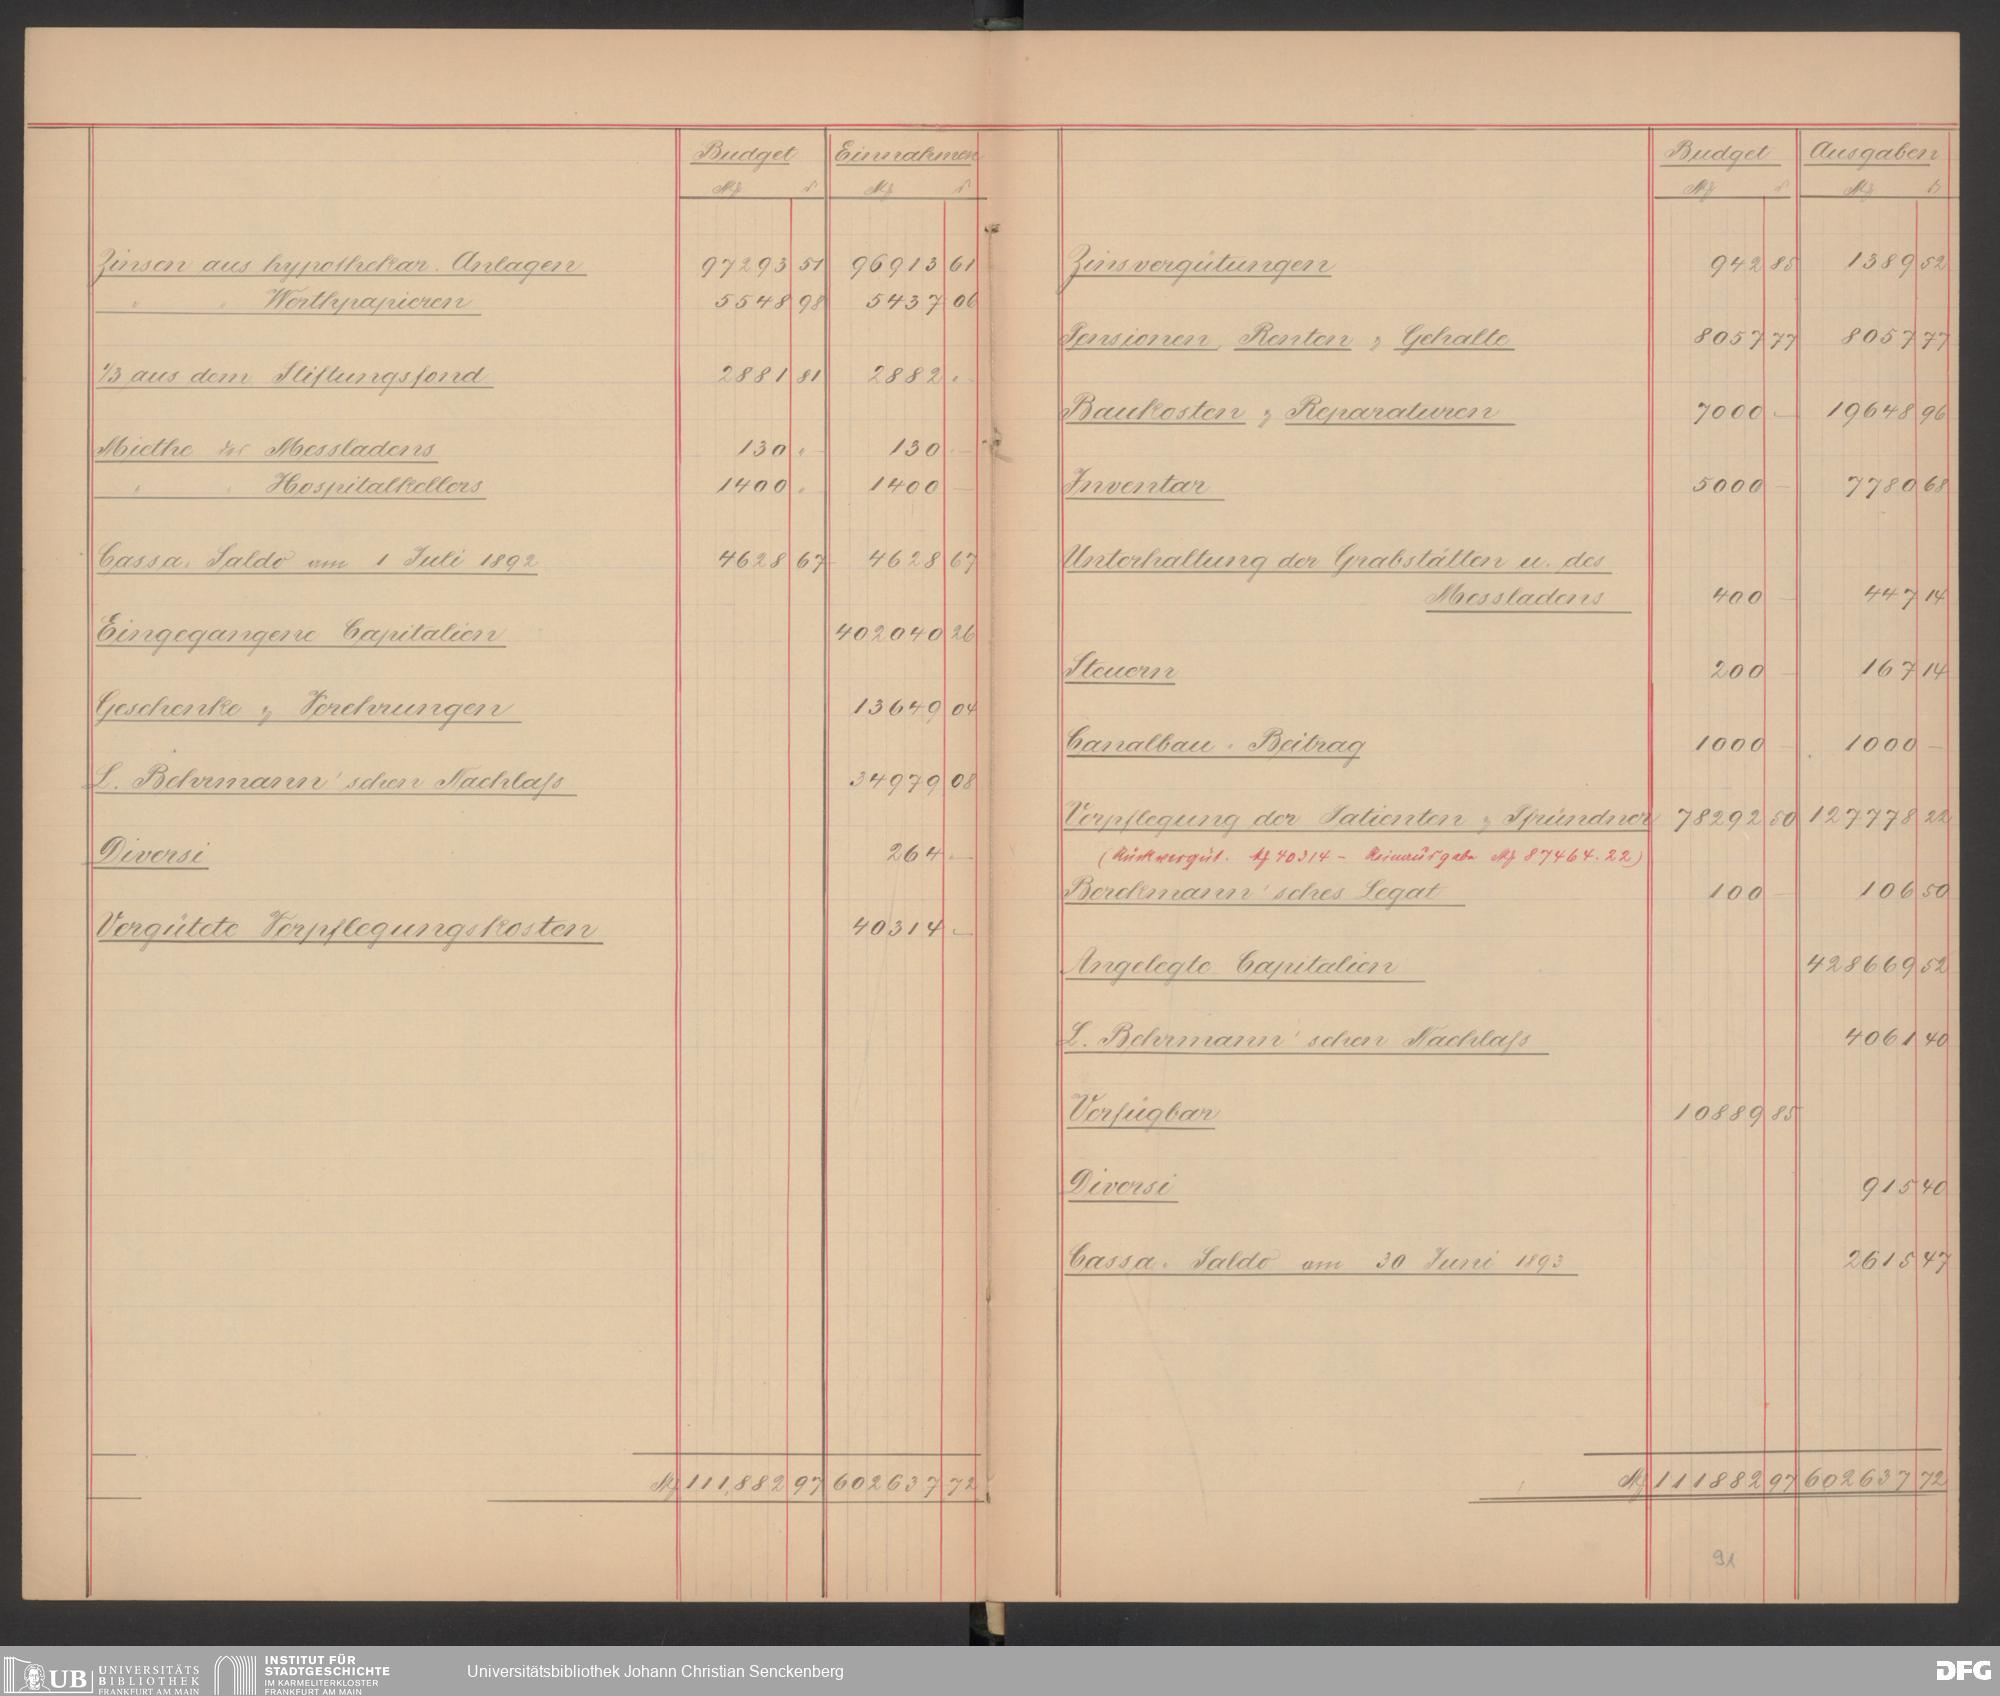 Budget Einnahmen
M ₰ M ₰
Zinsen aus hypothekar. Anlagen 97293 51 96913 61
" " Werthpapieren 5548 98 5437 06
1/3 aus dem Stiftungsfond 2881 81 2882 .-
Miethe des Messladens 130 .- 130 .-
" " Hospitalkellers 1400 . 1400 —
Cassa. Saldo am 1 Juli 1892 4628 67 4628 67
Eingegangene Capitalien 402040 26
Geschenke & Verehrungen 13649 04
L. Behrmann'schen Nachlaß 34979 08
Diversi 264 .—
Vergütete Verpflegungskosten 40314 .—
M 111,882 97 602637 72
Budget Ausgaben
M ₰ M ₰
Zinsvergütungen 942 85 1389 52
Pensionen, Renten & Gehalte 8057 77 8057 77
Baukosten & Reparaturen 7000 — 19648 96
Inventar 5000 — 7780 68
Unterhaltung der Grabstätten u. des
Messladens 400 — 447 14
Steuern 200 — 167 14
Canalbau. Beitrag 1000 — 1000 —
Verpflegung der Patienten & Pfründner 78292 50 127778 22
(Rückvergüt. M 40314 – Reinausgabe M 87464.22)
Berckmann'sches Legat 100 — 106 50
Angelegte Capitalien 428669 52
L. Behrmann'schen Nachlaß 4061 40
Verfügbar 10889 85
Diversi 915 40
Cassa. Saldo am 30 Juni 1893 2615 47
M 111882 97 602637 72
91
UB UNIVERSITÄTS
BIBLIOTHEK
FRANKFURT AM MAIN
INSTITUT FÜR
STADTGESCHICHTE
IM KARMELITERKLOSTER
FRANKFURT AM MAIN
Universitätsbibliothek Johann Christian Senckenberg
DFG